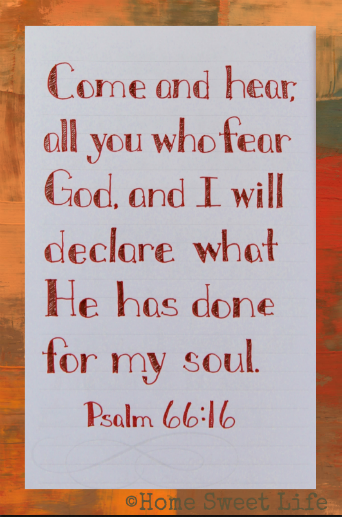 Come and hear,
all you who fear
God, and I will
declare what
He has done
for my soul.
Psalm 66:16
©Home Sweet Life